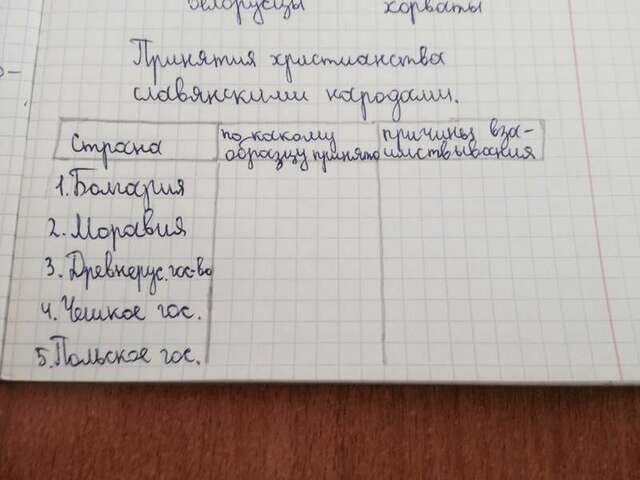 белорусцы хорваты
Принятия христианства
славянскими народами.
Страна по-какому образцу принято причины вза-имствывания
1. Болгария
2. Моравия
3. Древнерус. гос-во
4. Чешкое гос.
5. Польское гос.